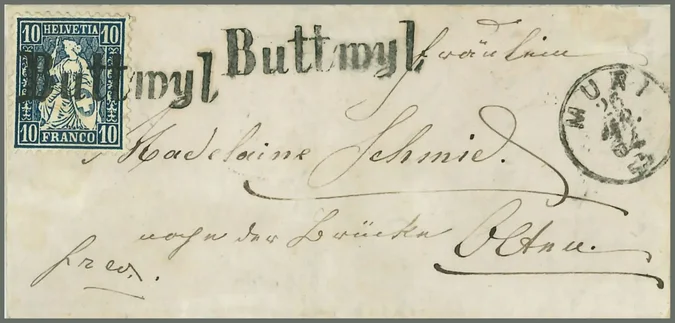 10 HELVETIA 10
10 FRANCO 10
Buttwyl
Buttwyl
Fräulein
MURI
Madelaine Schmid.
nahe der Brücke Olten.